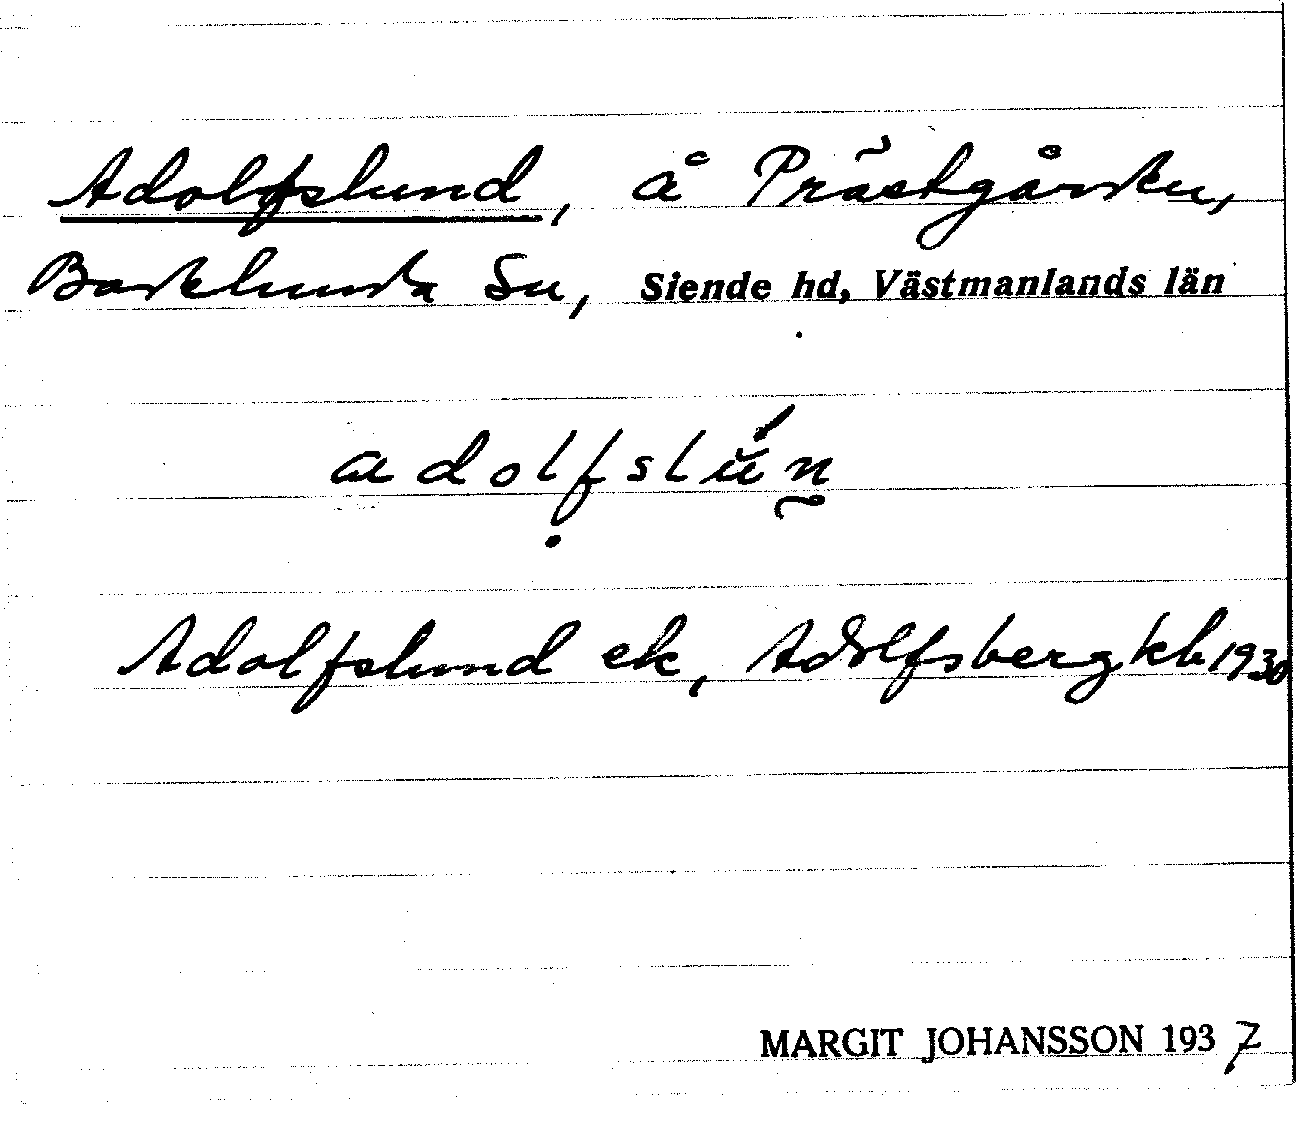 Adolfslund, å Prästgården,
Badelunda Sn, Siende hd, Västmanlands län
adolfslún
Adolfslund ek, Adolfsberg kb 1930
MARGIT JOHANSSON 1937